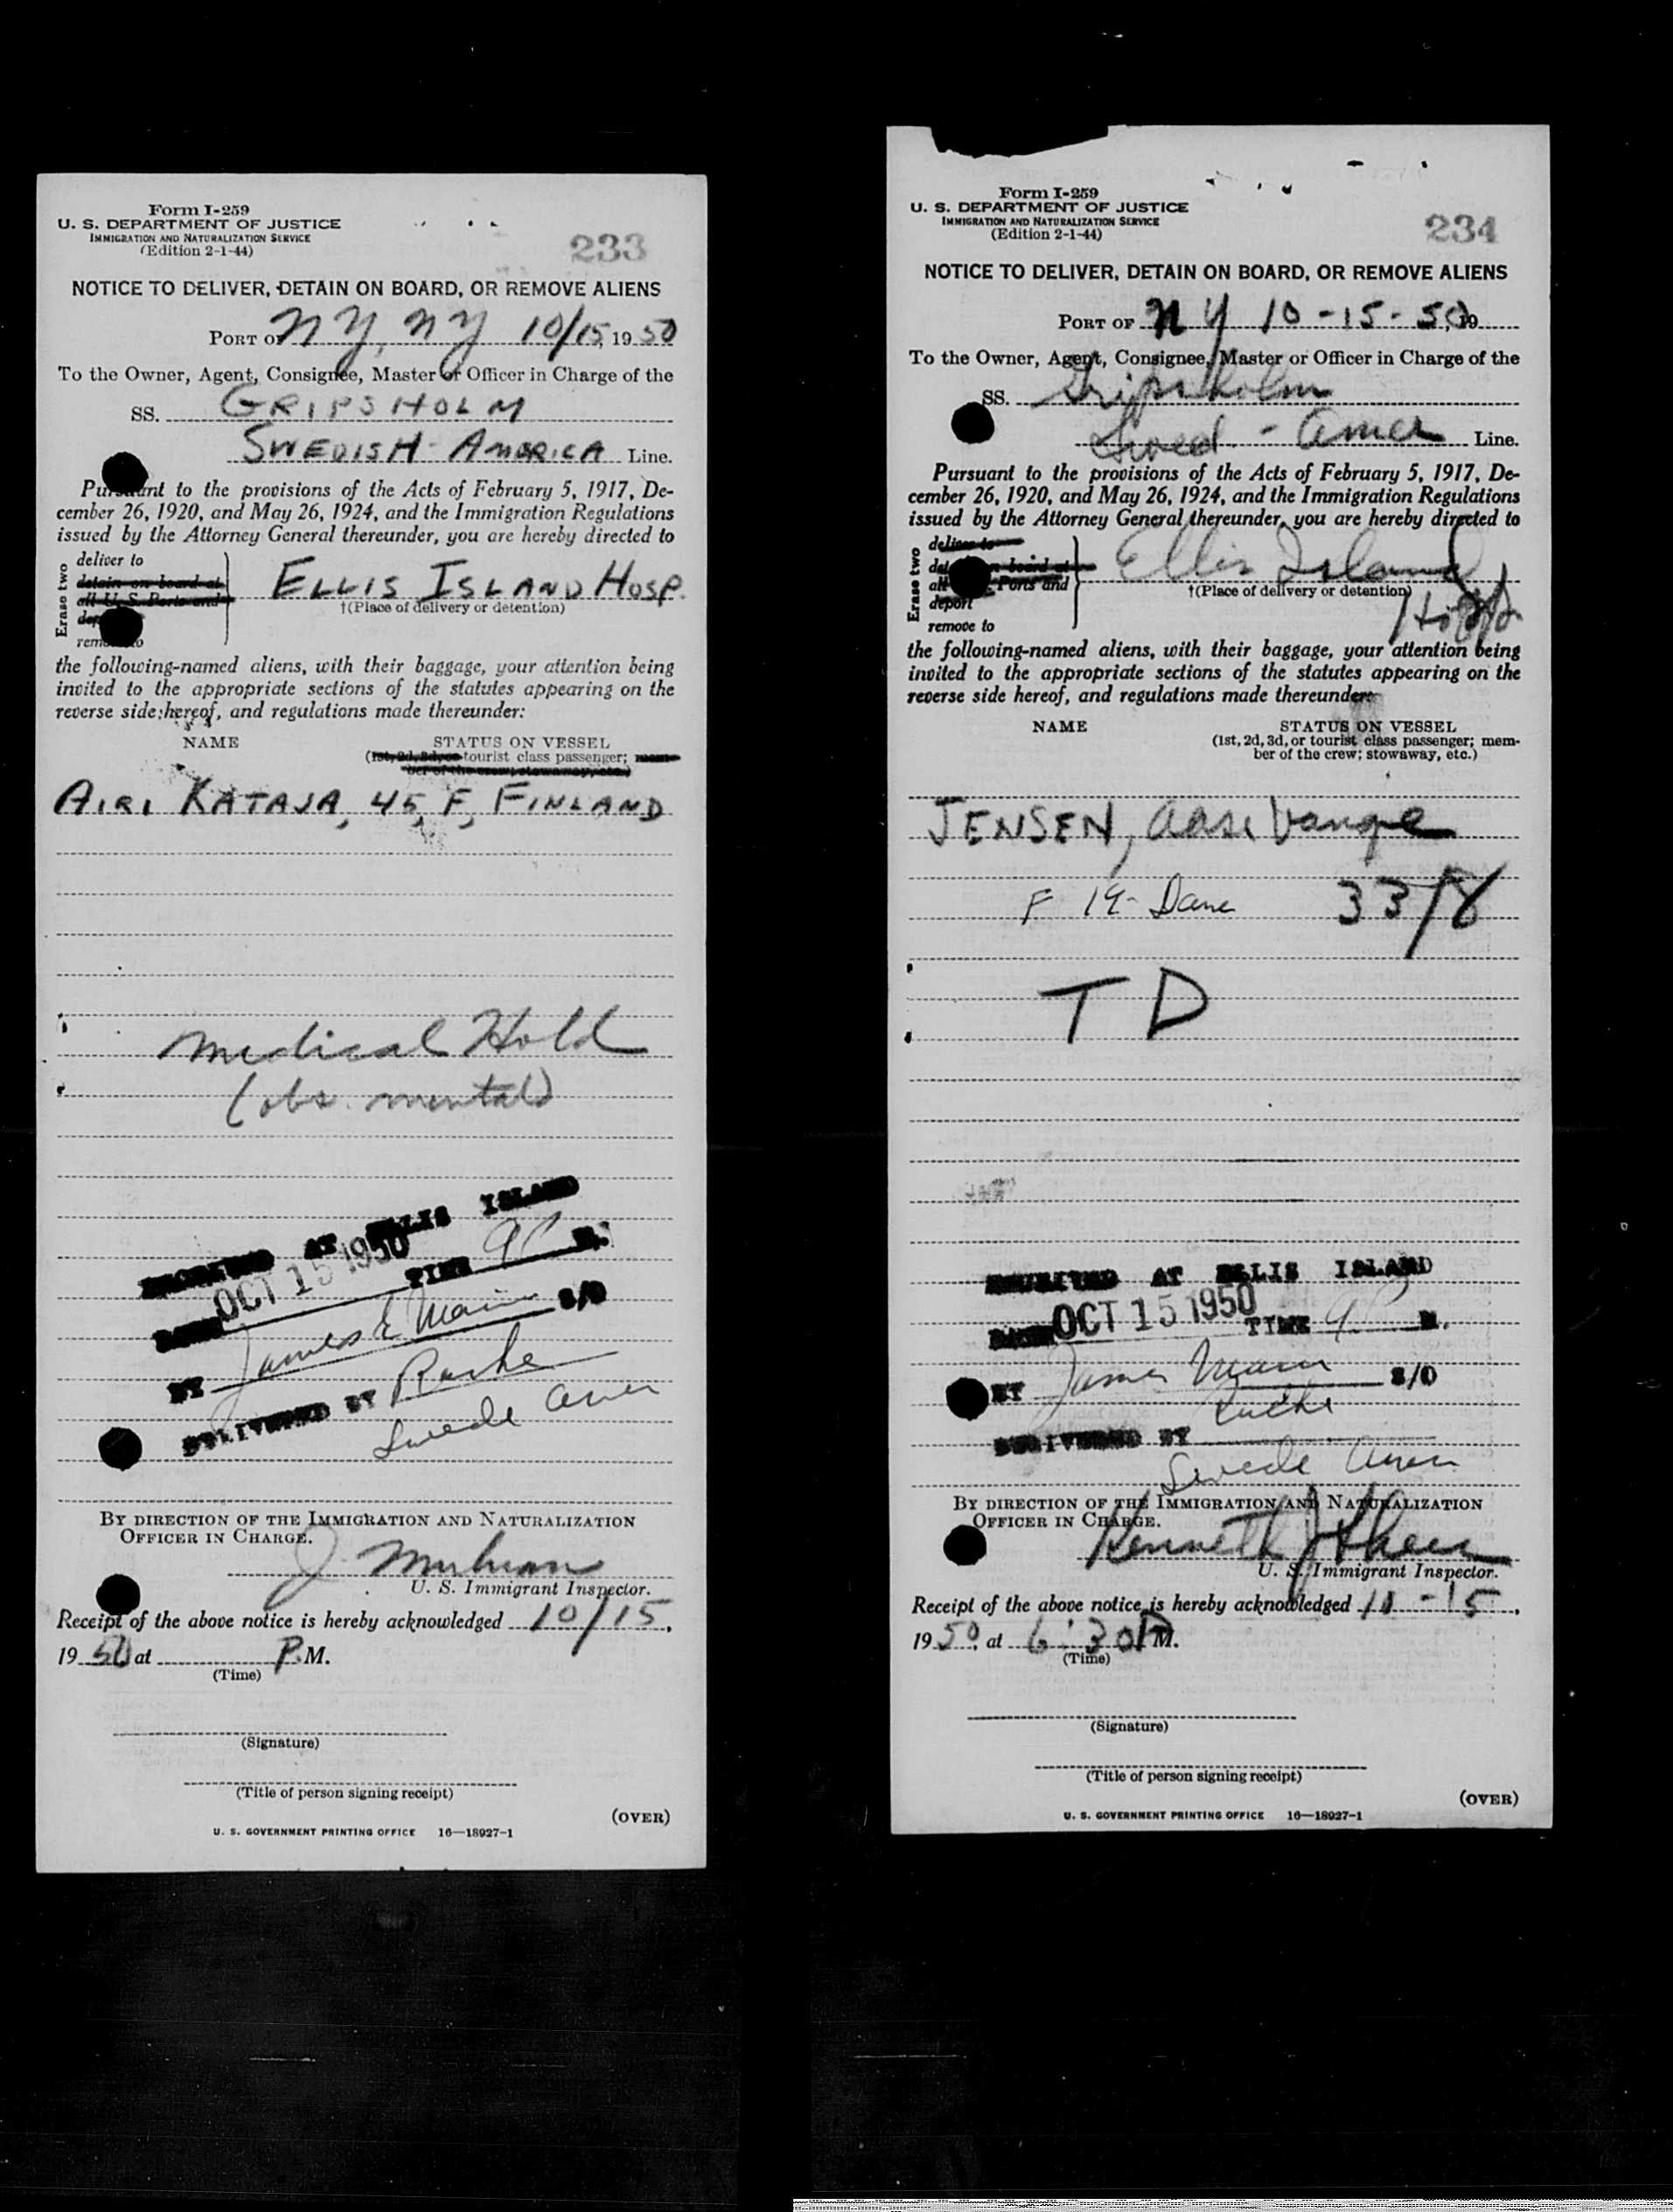 Form I-259
U. S. DEPARTMENT OF JUSTICE
IMMIGRATION AND NATURALIZATION SERVICE
(Edition 2-1-44)
233
NOTICE TO DELIVER, DETAIN ON BOARD, OR REMOVE ALIENS
PORT OF NY, NY 10/15, 19 50
To the Owner, Agent, Consignee, Master or Officer in Charge of the
SS. GRIPSHOLM
SWEDISH-AMERICA Line.
Pursuant to the provisions of the Acts of February 5, 1917, De-
cember 26, 1920, and May 26, 1924, and the Immigration Regulations
issued by the Attorney General thereunder, you are hereby directed to
Erase two
deliver to
detain on board at
all U. S. Ports and
remove to
ELLIS ISLAND HOSP.
†(Place of delivery or detention)
the following-named aliens, with their baggage, your attention being
invited to the appropriate sections of the statutes appearing on the
reverse side hereof, and regulations made thereunder:
NAME STATUS ON VESSEL
(1st, 2d, 3d, or tourist class passenger; mem-
ber of the crew; stowaway, etc.)
AIRI KATAJA, 45, F, FINLAND
Medical Hold
(obs. mental)
RECEIVED AT ELLIS ISLAND
DATE OCT 15 1950 TIME 9P M.
BY James E S/O
DELIVERED BY
Swede Amer
BY DIRECTION OF THE IMMIGRATION AND NATURALIZATION
OFFICER IN CHARGE.
U. S. Immigrant Inspector.
Receipt of the above notice is hereby acknowledged 10/15,
19 50 at P.M.
(Time)
(Signature)
(Title of person signing receipt)
(OVER)
U. S. GOVERNMENT PRINTING OFFICE 16—18927-1
Form I-259
U. S. DEPARTMENT OF JUSTICE
IMMIGRATION AND NATURALIZATION SERVICE
(Edition 2-1-44)
234
NOTICE TO DELIVER, DETAIN ON BOARD, OR REMOVE ALIENS
PORT OF NY 10-15-50, 19
To the Owner, Agent, Consignee, Master or Officer in Charge of the
SS. Gripsholm
Swed - Amer Line.
Pursuant to the provisions of the Acts of February 5, 1917, De-
cember 26, 1920, and May 26, 1924, and the Immigration Regulations
issued by the Attorney General thereunder, you are hereby directed to
Erase two
deliver to
board at
all Ports and
deport
remove to
Ellis Island
†(Place of delivery or detention)
Hosp
the following-named aliens, with their baggage, your attention being
invited to the appropriate sections of the statutes appearing on the
reverse side hereof, and regulations made thereunder:
NAME STATUS ON VESSEL
(1st, 2d, 3d, or tourist class passenger; mem-
ber of the crew; stowaway, etc.)
JENSEN, Aase Vange
F 19- Dane 33/8
T D
RECEIVED AT ELLIS ISLAND
DATE OCT 15 1950 TIME 9P M.
BY James S/O
DELIVERED BY
Swede Amer
BY DIRECTION OF THE IMMIGRATION AND NATURALIZATION
OFFICER IN CHARGE.
Kenneth J
U. S. Immigrant Inspector.
Receipt of the above notice is hereby acknowledged 10-15,
19 50, at 6:30 P.M.
(Time)
(Signature)
(Title of person signing receipt)
(OVER)
U. S. GOVERNMENT PRINTING OFFICE 16—18927-1